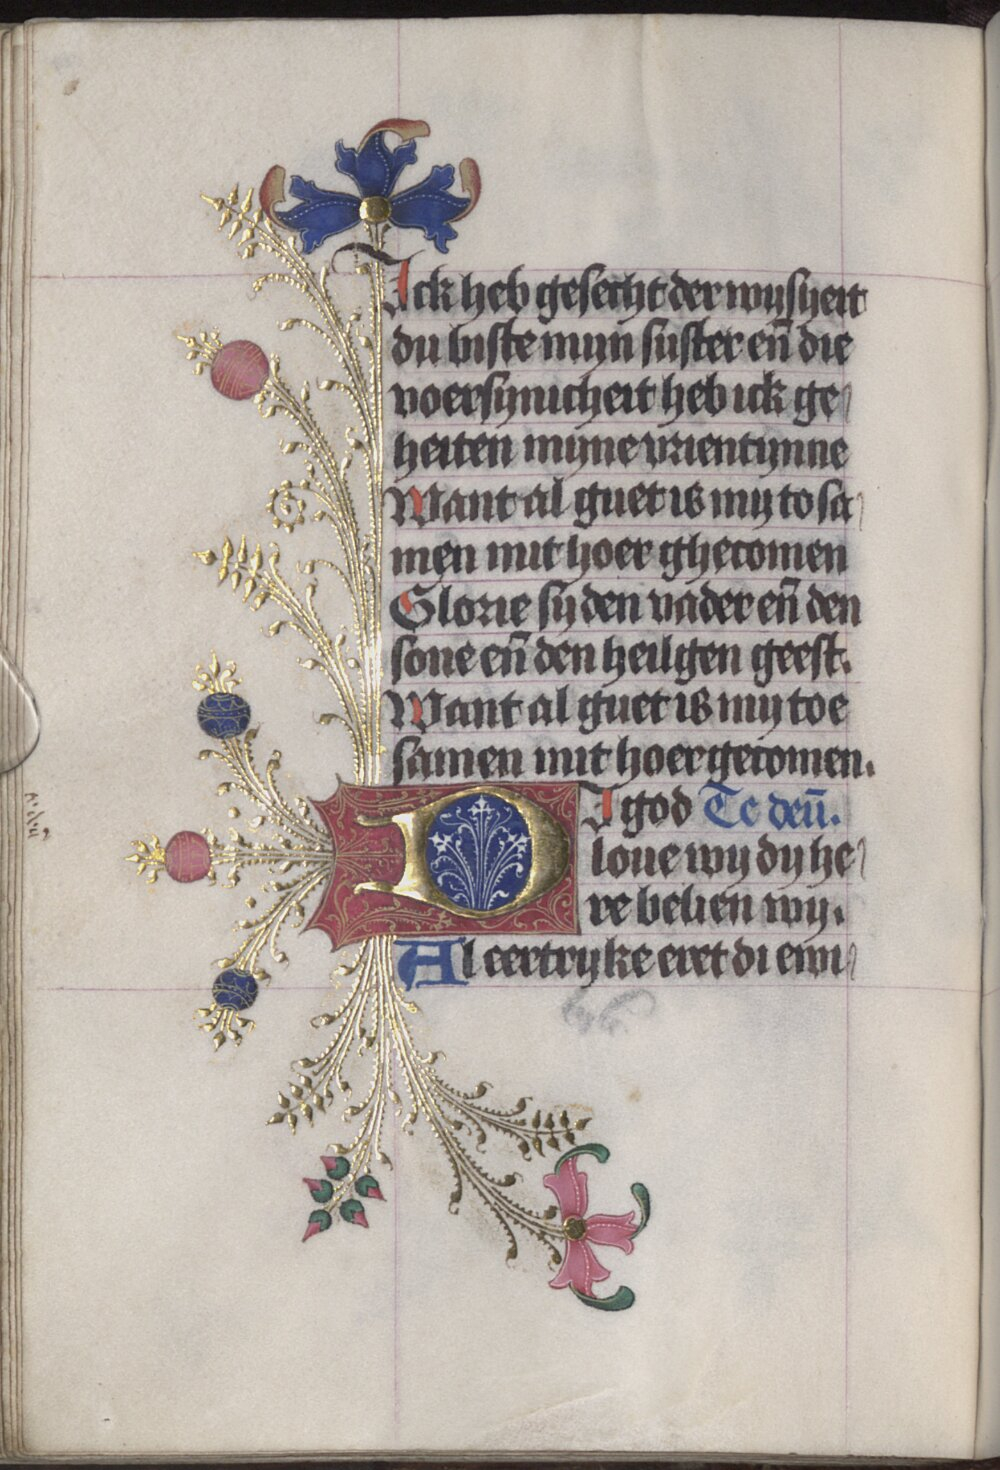 Ick heb gesecht der wijsheit
du biste mijn suster en̄ die
voersynicheit heb ick ge
heiten mijne vrientynne
Want al guet is mij to sa
men mit hoer ghecomen
Glorie sij den vader en̄ den
sone en̄ den heiligen geest.
Want al guet is mij toe
samen mit hoer gecomen.
DI god Te deū.
loue wij dy he
re belien wij.
Al eertryke eret di ewi